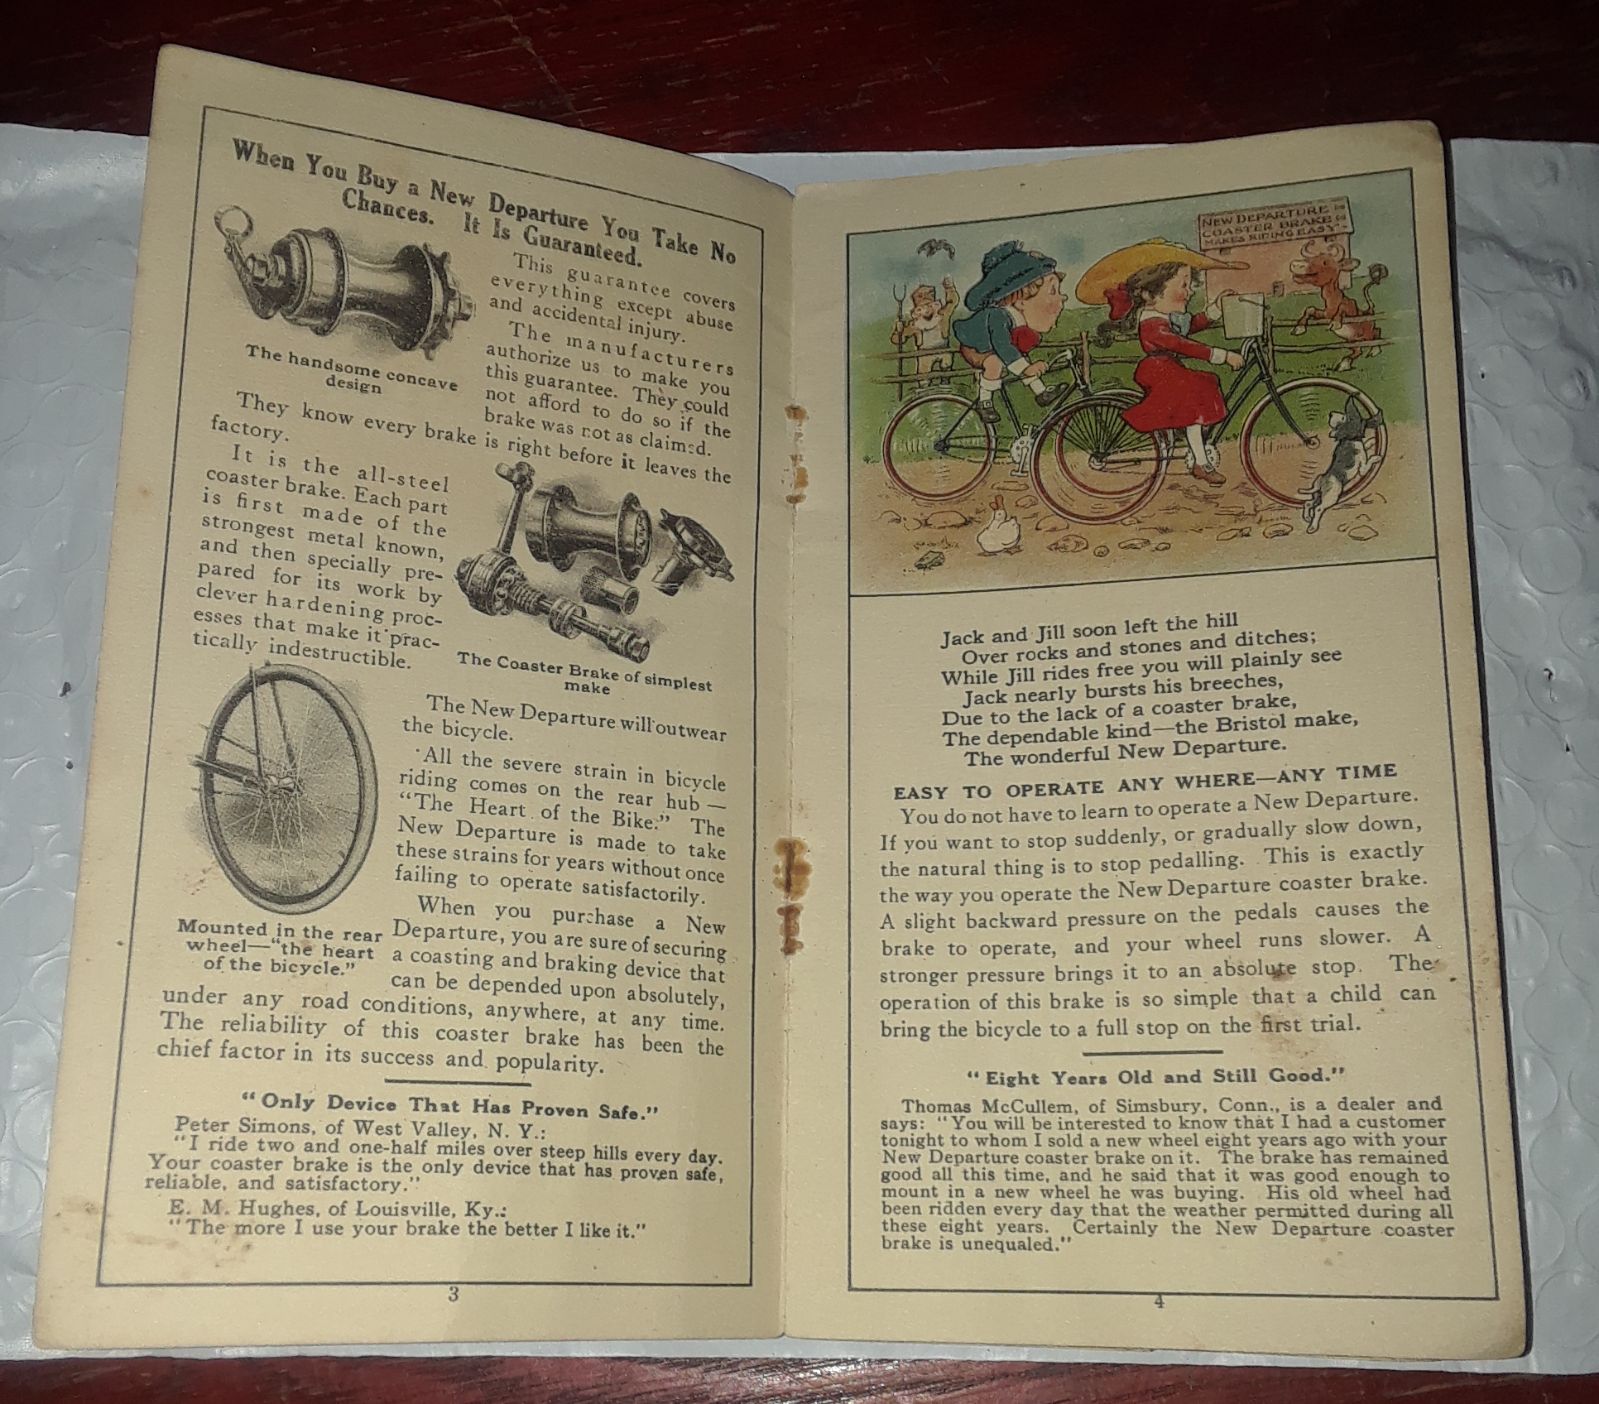 When You Buy a New Departure You Take No
Chances. It Is Guaranteed.
The handsome concave
design
This guarantee covers
everything except abuse
and accidental injury.
The manufacturers
authorize us to make you
this guarantee. They could
not afford to do so if the
brake was not as claimed.
They know every brake is right before it leaves the
factory.
It is the all-steel
coaster brake. Each part
is first made of the
strongest metal known,
and then specially pre-
pared for its work by
clever hardening proc-
esses that make it prac-
tically indestructible.
The Coaster Brake of simplest
make
The New Departure will outwear
the bicycle.
All the severe strain in bicycle
riding comes on the rear hub—
"The Heart of the Bike." The
New Departure is made to take
these strains for years without once
failing to operate satisfactorily.
Mounted in the rear
wheel—"the heart
of the bicycle."
When you purchase a New
Departure, you are sure of securing
a coasting and braking device that
can be depended upon absolutely,
under any road conditions, anywhere, at any time.
The reliability of this coaster brake has been the
chief factor in its success and popularity.
"Only Device That Has Proven Safe."
Peter Simons, of West Valley, N. Y.:
"I ride two and one-half miles over steep hills every day.
Your coaster brake is the only device that has proven safe,
reliable, and satisfactory."
E. M. Hughes, of Louisville, Ky.:
"The more I use your brake the better I like it."
3
NEW DEPARTURE
COASTER BRAKE
MAKES RIDING EASY
Jack and Jill soon left the hill
Over rocks and stones and ditches;
While Jill rides free you will plainly see
Jack nearly bursts his breeches,
Due to the lack of a coaster brake,
The dependable kind—the Bristol make,
The wonderful New Departure.
EASY TO OPERATE ANY WHERE—ANY TIME
You do not have to learn to operate a New Departure.
If you want to stop suddenly, or gradually slow down,
the natural thing is to stop pedalling. This is exactly
the way you operate the New Departure coaster brake.
A slight backward pressure on the pedals causes the
brake to operate, and your wheel runs slower. A
stronger pressure brings it to an absolute stop. The
operation of this brake is so simple that a child can
bring the bicycle to a full stop on the first trial.
"Eight Years Old and Still Good."
Thomas McCullem, of Simsbury, Conn., is a dealer and
says: "You will be interested to know that I had a customer
tonight to whom I sold a new wheel eight years ago with your
New Departure coaster brake on it. The brake has remained
good all this time, and he said that it was good enough to
mount in a new wheel he was buying. His old wheel had
been ridden every day that the weather permitted during all
these eight years. Certainly the New Departure coaster
brake is unequaled."
4